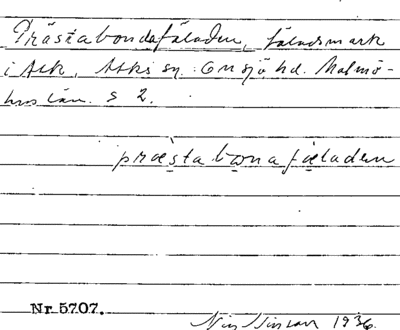 Prästabondafäladen, fäladsmark
i Ask, Asks sn. Onsjö hd. Malmö-
hus län. S 2.
præstabonafæladen
Nr 5707.
1936.